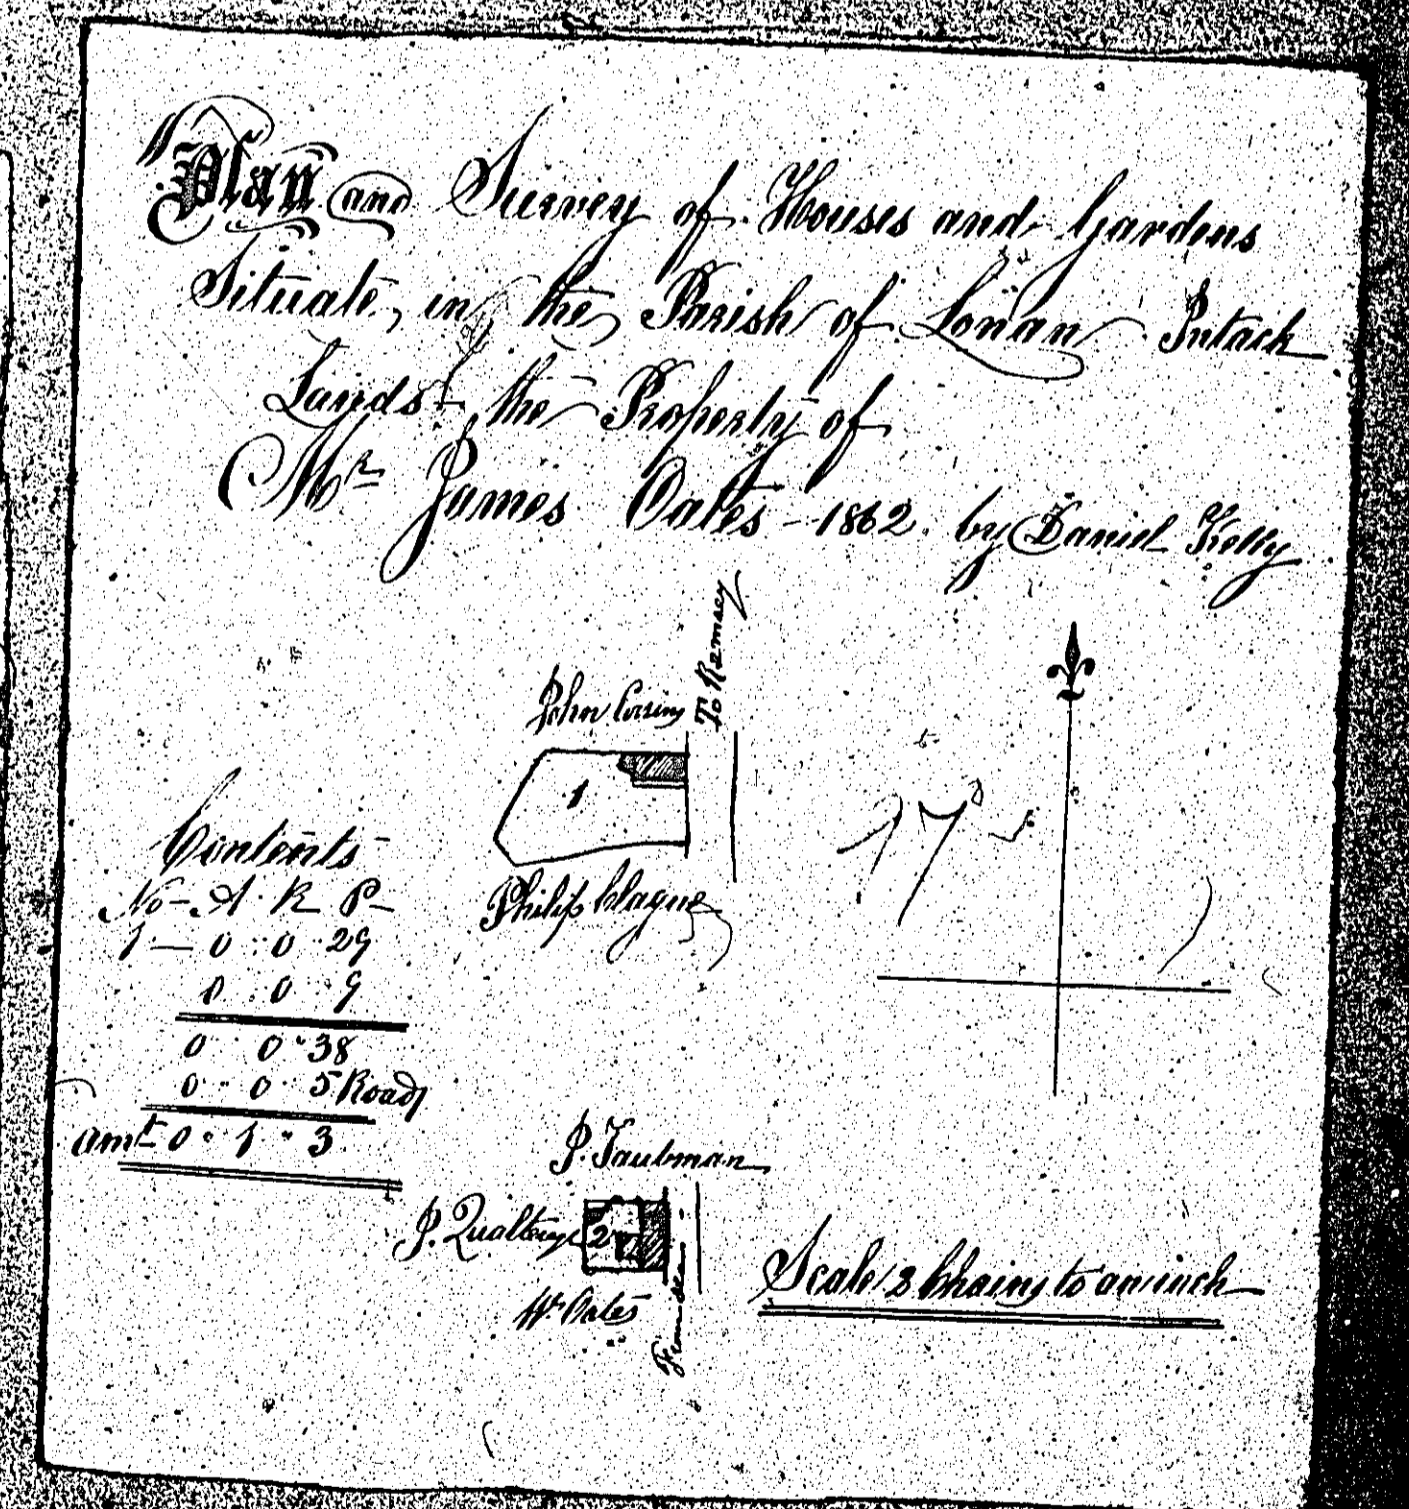 Plan and Survey of Houses and Gardens
Situate, in the Parish of Lonan Intack
Lands the Property of
Mr James Oates - 1862. by Daniel Kelly
To Ramsey
John
1
17
Philip Clague
Contents
No - A. R P -
1 - 0 : 0 . 29
0 . 0 . 9
0 . 0 . 38
0 . 0 . 5 Road
amt 0 . 1 . 3
J. Taubman
J. Qualtrough
2
Wm Oates
Scale 2 Chains to an inch